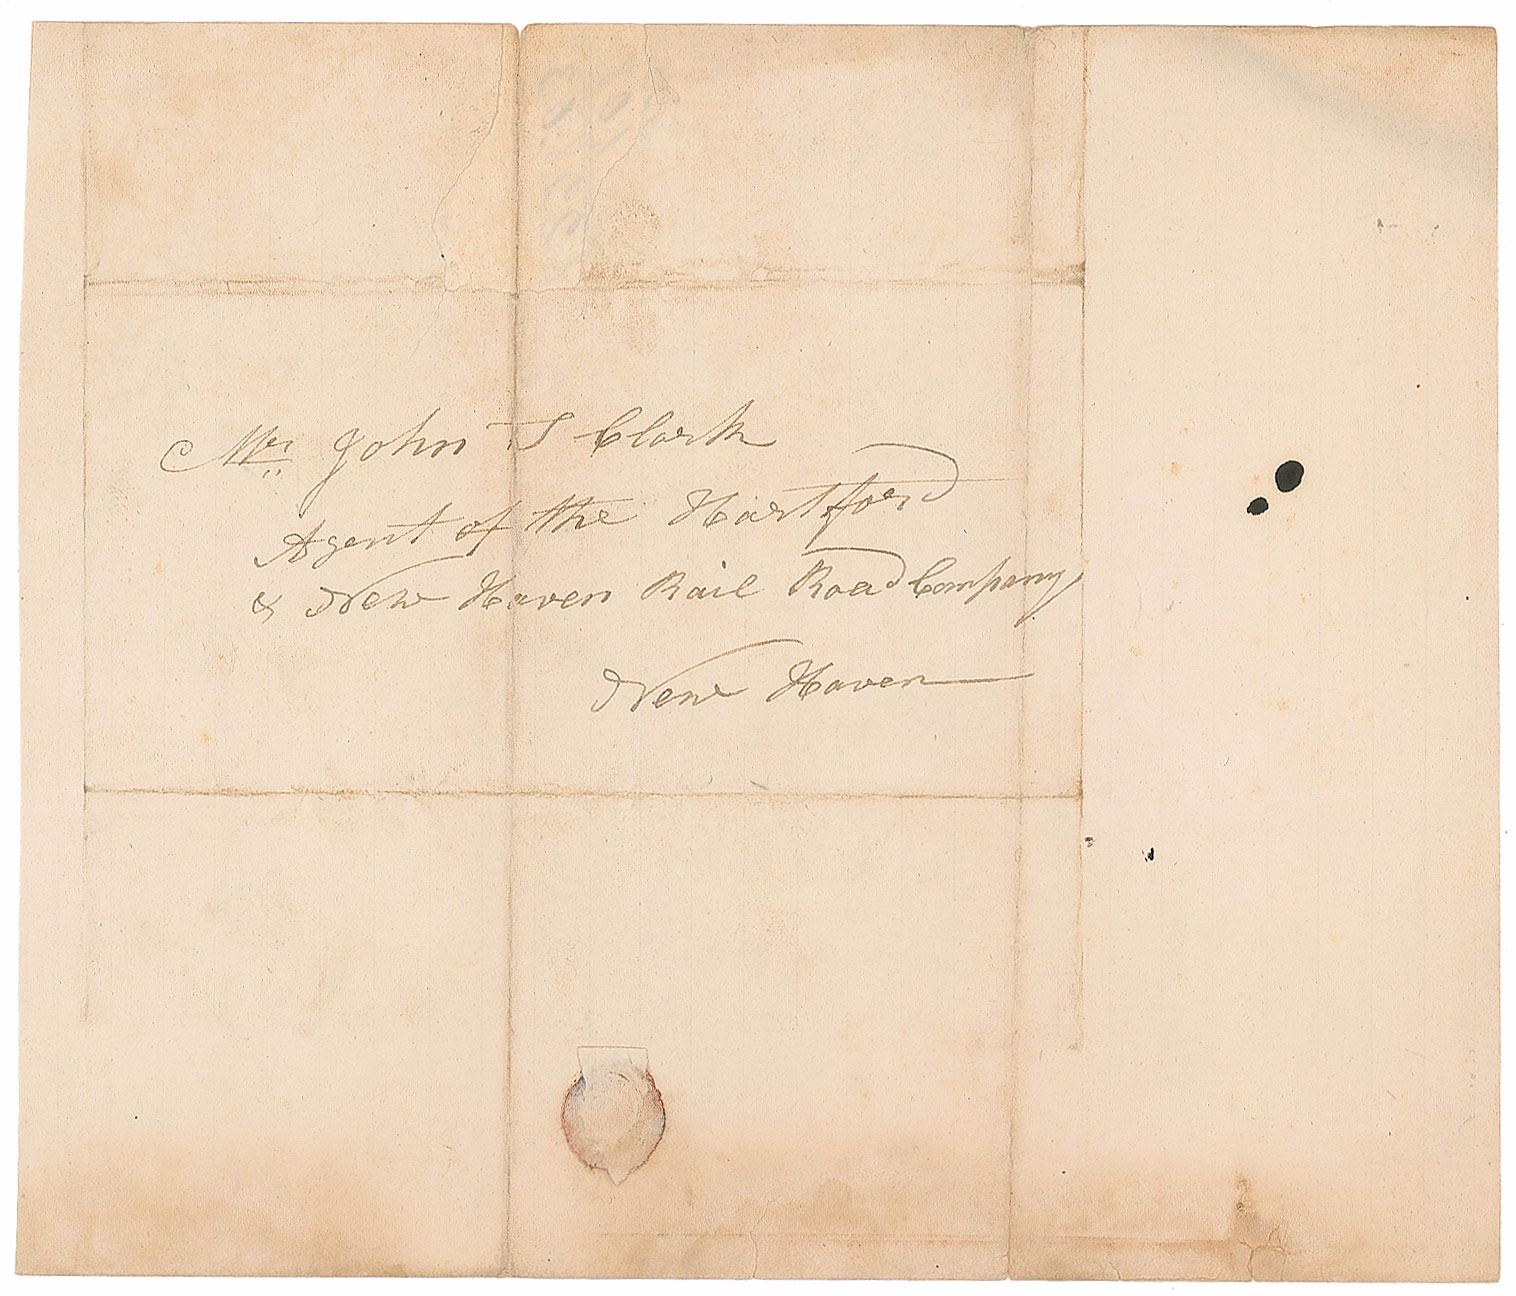 Mr John T Clark
Agent of the Hartford
& New Haven Rail Road Company
New Haven